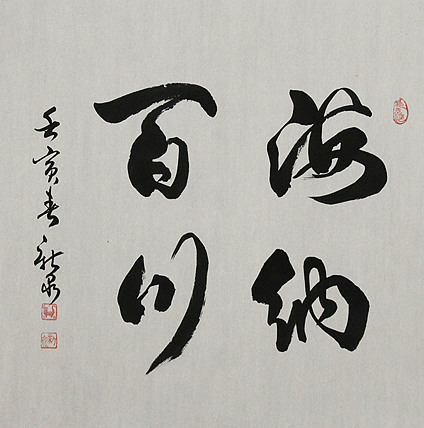 海纳
百川
壬寅春